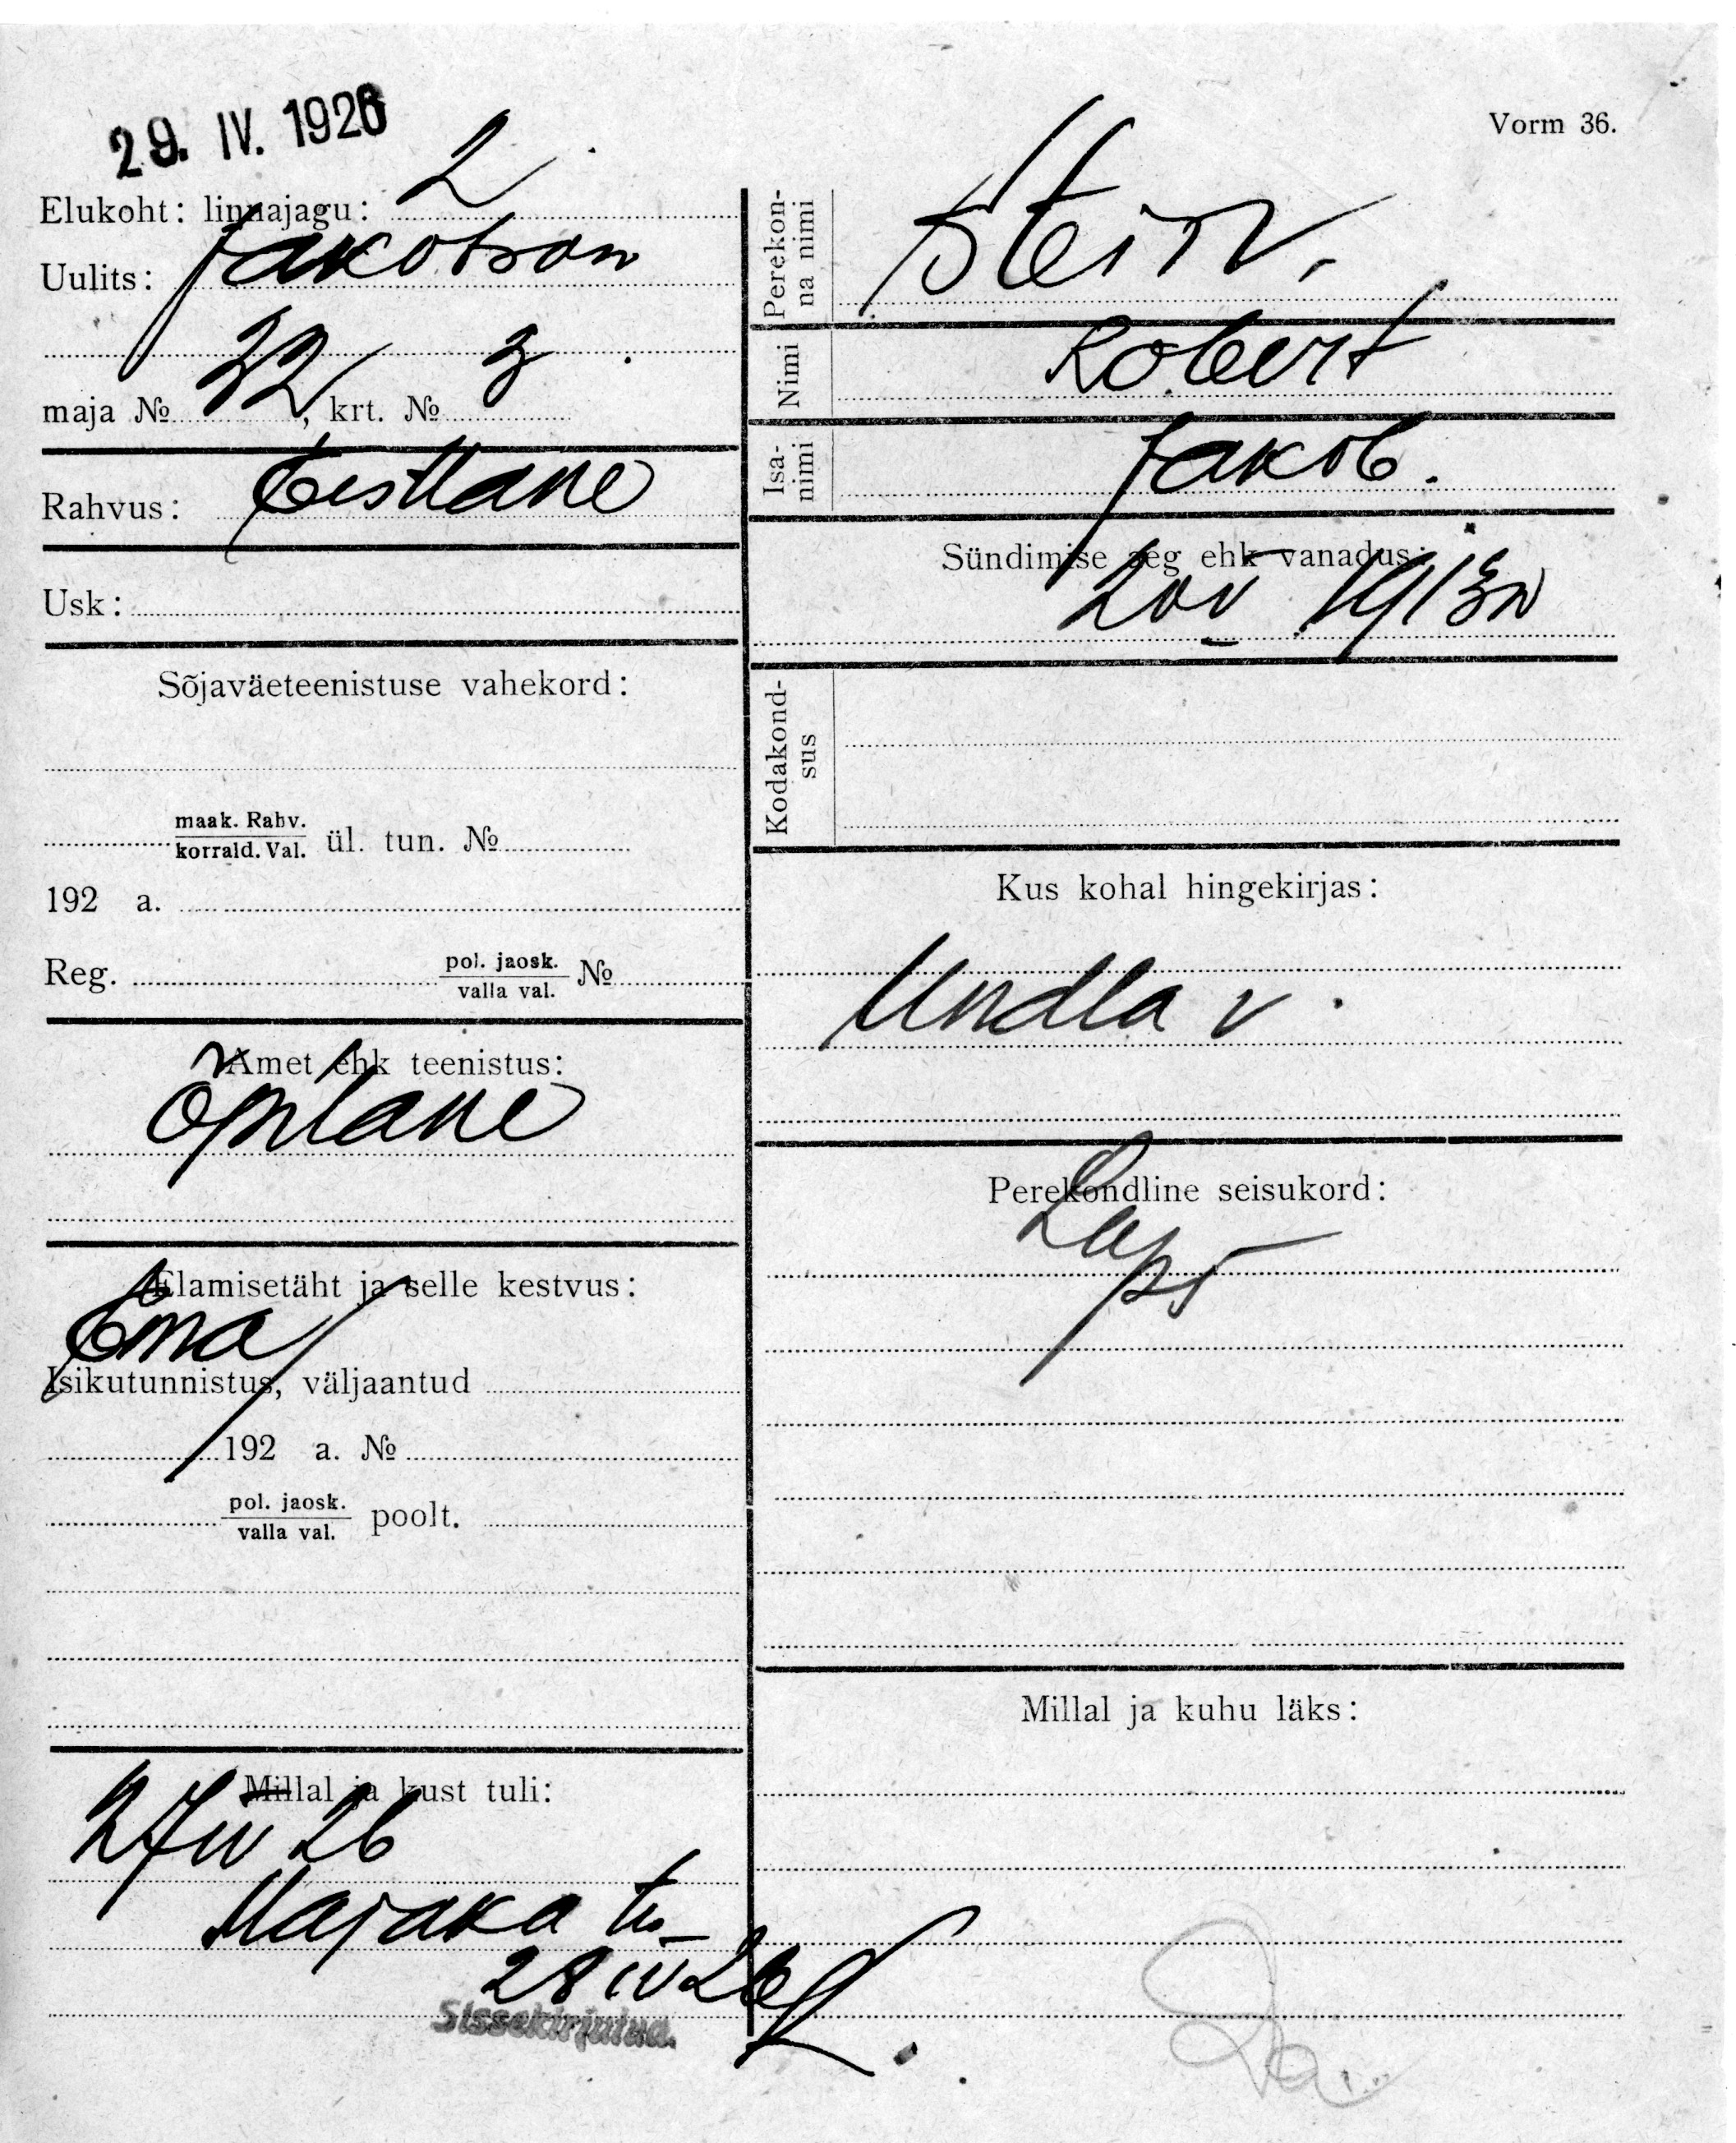 29. IV. 1926
Vorm 36.
Elukoht: linnajagu: 2
Uulits: Jakobson
32 3
maja № , krt. №
Rahvus: Eestlane
Usk:
Sõjaväeteenistuse vahekord:
maak. Rahv.
korrald. Val. ül. tun. №
192 a.
Reg. pol. jaosk. №
valla val.
Amet ehk teenistus:
Õpilane
Elamisetäht ja selle kestvus:
Ema
Isikutunnistus, väljaantud
192 a. №
pol. jaosk.
valla val. poolt.
Millal ja kust tuli:
27 IV 26
Majaka tn
28 IV 26
Sissekirjutud.
Perekon-
na nimi
Stein.
Nimi
Robert
Isa-
nimi
Jakob.
Sündimise aeg ehk vanadus:
1913
Kodakond-
sus
Kus kohal hingekirjas:
Undla v.
Perekondline seisukord:
Laps
Millal ja kuhu läks: